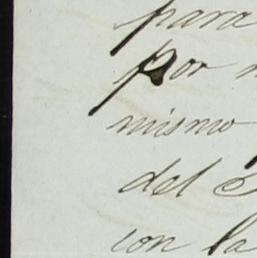 para
por
mismo
del
con la